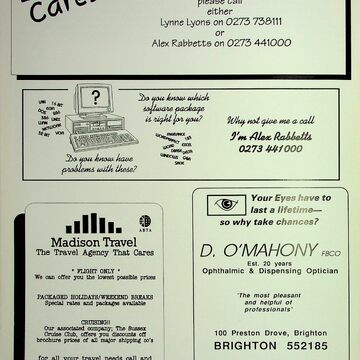 Cares
please call
either
Lynne Lyons on 0273 738111
or
Alex Rabbetts on 0273 441000
?
Do you know which
software package
is right for you?
Do you know have
problems with these?
Why not give me a call
I'm Alex Rabbetts
0273 441000
Madison Travel
The Travel Agency That Cares
ABTA
" FLIGHT ONLY "
We can offer you the lowest possible prices
PACKAGED HOLIDAYS/WEEKEND BREAKS
Special rates and packages available
CRUISING!!
Our associated company; The Sussex
Cruise Club, offers you discounts off
brochure prices of all major shipping co's
for all your travel needs call and
Your Eyes have to
last a lifetime—
so why take chances?
D. O'MAHONY FBCO
Est. 20 years
Ophthalmic & Dispensing Optician
'The most pleasant
and helpful of
professionals'
100 Preston Drove, Brighton
BRIGHTON 552185